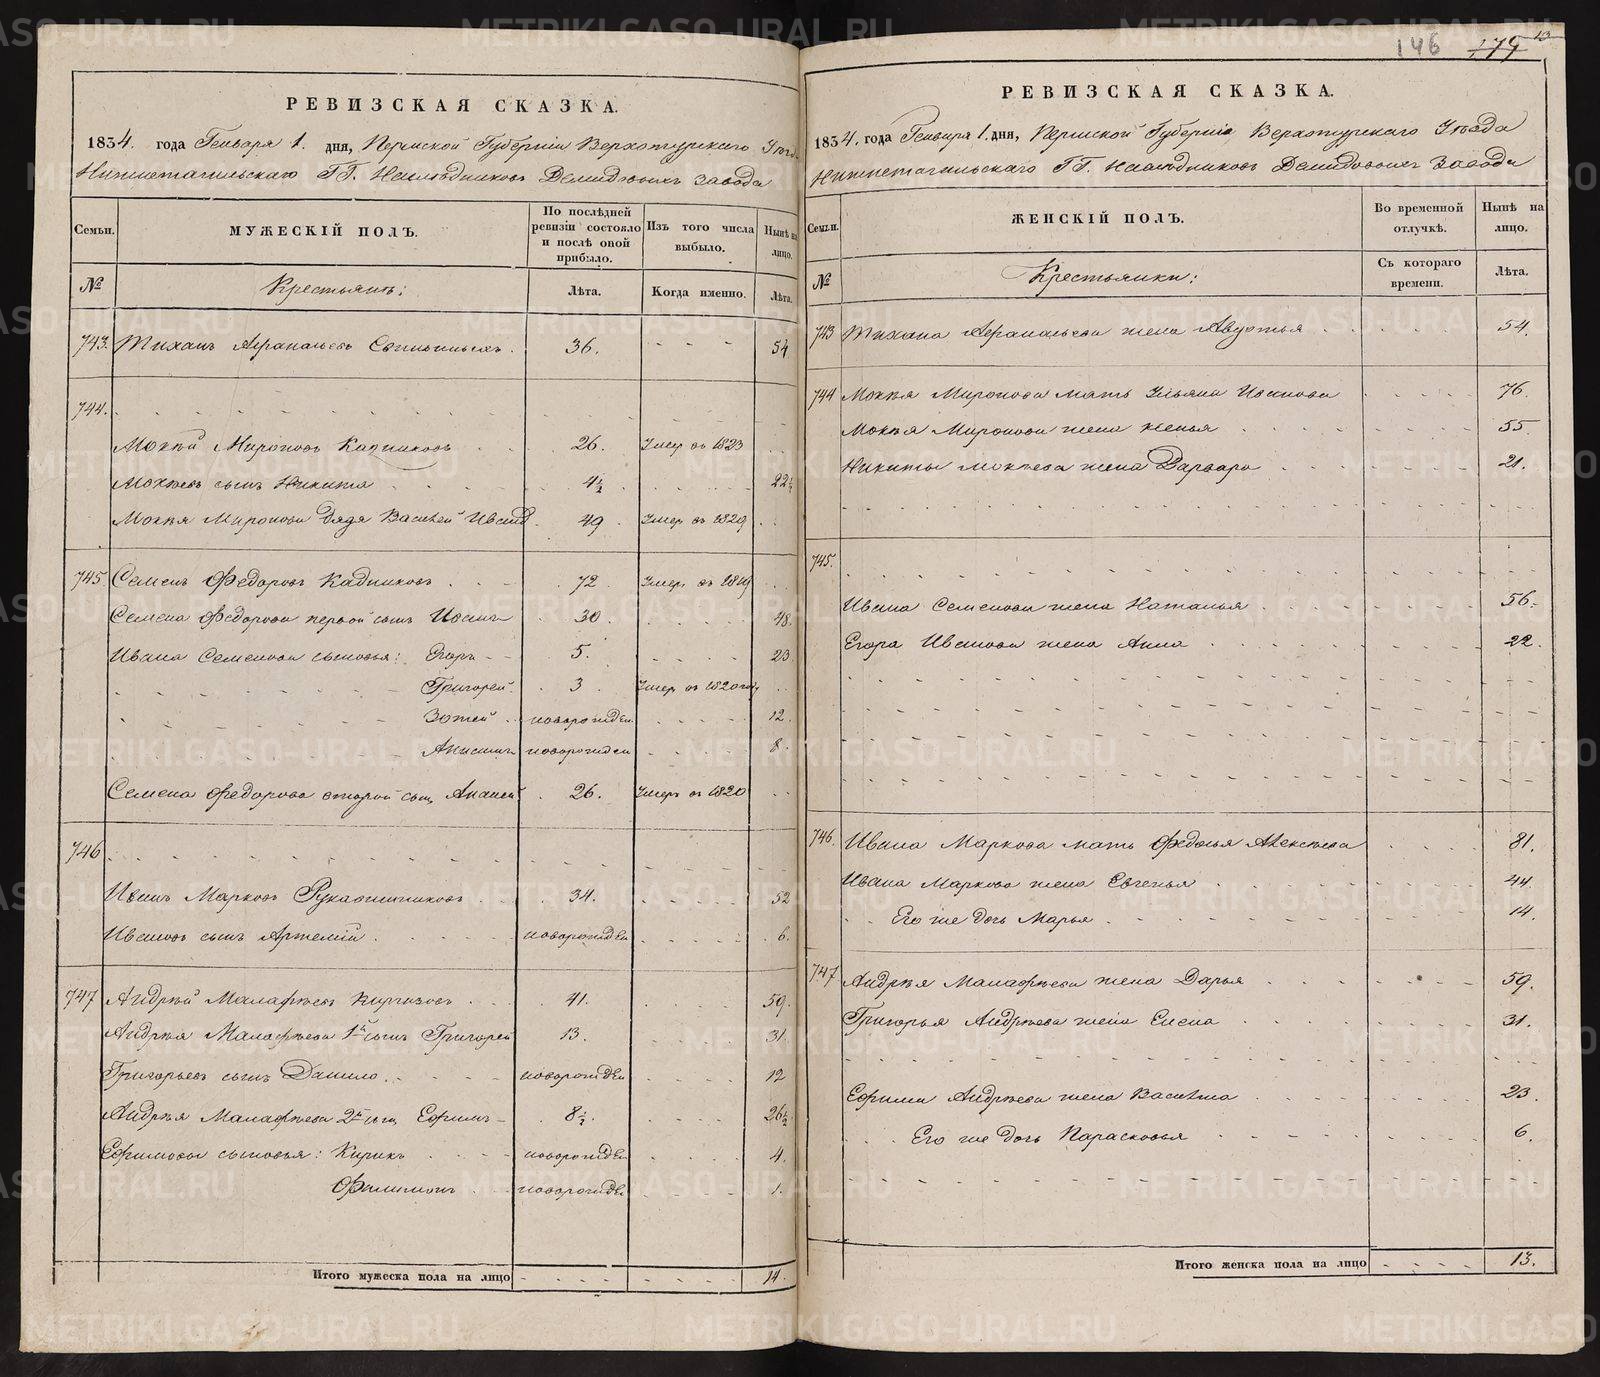 РЕВИЗСКАЯ СКАЗКА.
1834. года Генваря 1. дня, Пермской Губернiи Верхотурскаго Уѣзда
Нижнетагильскаго ГГ. Наслѣдниковъ Демидовыхъ завода
Семьи.
МУЖЕСКIЙ ПОЛЪ.
По послѣдней ревизiи состояло и послѣ оной прибыло.
Изъ того числа выбыло.
Нынѣ на лицо.
№
Крестьянъ:
Лѣта.
Когда именно.
Лѣта.
743. Тиханъ Афанасьевъ 36. 54
744.
Мокѣй Мироновъ Кадниковъ 26. Умер въ 1823
Мокѣевъ сынъ Никита 4½ 22½
Мокѣя Миронова дядя Василей Иванов 49 Умер въ 1829
745. Семенъ Федоровъ Кадниковъ 72 Умер въ 1819
Семена Федорова первой сынъ Иванъ 30 48.
Ивана Семенова сыновья: Егоръ 5. 23
Григорей 3 Умер въ 1820 году
Зотей новорожден 12.
Анисимъ новорожден 8.
Семена Федорова второй сынъ Ананей 26. Умеръ въ 1820
746
Иванъ Марковъ Рукавишниковъ 34. 52
Ивановъ сынъ Артемiй новорожден 6.
747 Андрѣй Малафѣевъ Киргизовъ 41. 59.
Андрѣя Малафѣева 1й сынъ Григорей 13. 31
Григорьевъ сынъ Данило новорожден 12
Андрѣя Малафѣева 2й сынъ Ефимъ 8½. 26½
Ефимовы сыновья: Кирикъ новорожден 4.
Филимонъ новорожден 1.
Итого мужеска пола на лицо 14.
146 179 13
РЕВИЗСКАЯ СКАЗКА.
1834. года Генваря 1. дня, Пермской Губернiи Верхотурскаго Уѣзда
Нижнетагильскаго ГГ. Наслѣдниковъ Демидовыхъ завода
Семьи.
ЖЕНСКIЙ ПОЛЪ.
Во временной отлучкѣ.
Нынѣ на лицо.
№
Крестьянки:
Съ котораго времени.
Лѣта.
743 Тихана Афанасьева жена Авдотья 54.
744 Мокѣя Миронова мать Ульяна Иванова 76.
Мокѣя Миронова жена Ксенья 55.
Никиты Мокѣева жена Варвара 21.
745.
Ивана Семенова жена Наталья 56.
Егора Иванова жена Анна 22.
746. Ивана Маркова мать Федосья Алексѣева 81.
Ивана Маркова жена Евгенья 44.
Его же дочь Марья 14.
747 Андрѣя Малафѣева жена Дарья 59.
Григорья Андрѣева жена Елена 31.
Ефима Андрѣева жена Васильса 23.
Его же дочь Парасковья 6.
Итого женска пола на лицо 13.
METRIKI.GASO-URAL.RU